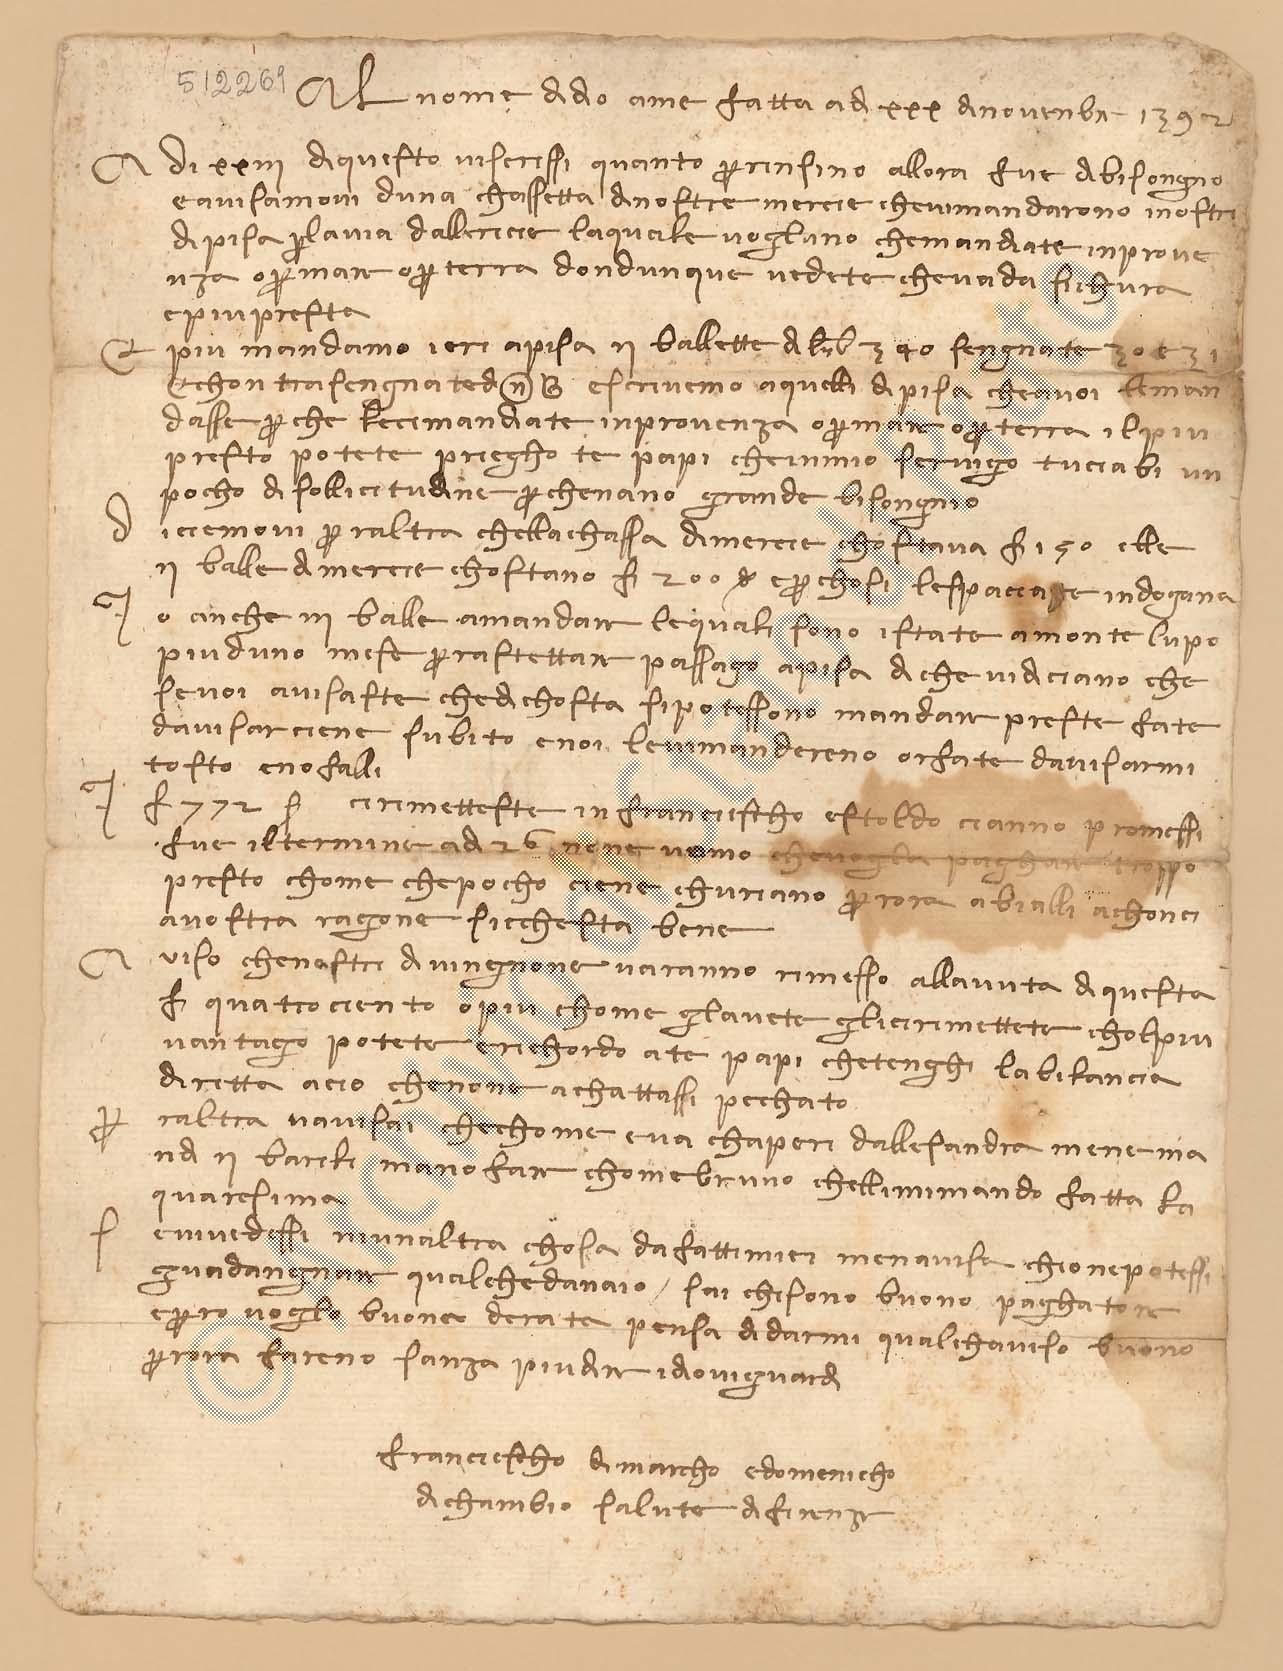 512269
Al nome di dio ame fatta a dì xxx di novenbr 1392
A dì xxiii di questo vi scrissi quanto per insino allora fue di bisongno
e avisamovi d una chassetta di nostre mercie che vi mandarono i nostri
di pisa per la via dallericie la quale voglono che mandiate in prove
nza o per mar o per terra dondunque vedete che vada sichura
e piu presta
E piu mandamo ieri a pisa ii ballette di lib 340 sengnate 30 e 31
e chontrasengnate d e scrivemo a quelli di pisa che a voi le man
dasse perche le ci mandiate in provenza o per mar o per terra il piu
presto potete priegho te papi che in mio servigo tuci abi un
pocho di sollicitudine perche n ano grande bisongnio
Diciemovi per altra che lla chassa di mercie chostava f 150 e lle
ii balle di mercie chostano f 200 e per chosi le spacciate in dogana
Io anche iii balle a mandar le quali sono istate a monte lupo
piu d uno mese per aspettar passago a pisa di che vi diciano che
se voi avisaste che di chosta si potessono mandar preste fate
d avisarciene subito e noi le vi mandereno or fate d avisarmi
tosto e no falli
I f 772 s ci rimetteste in franciescho e stoldo ci anno promessi
fue il termine a dì 26 ne ne uomo che vogla paghar troppo
presto chome che pocho ciene churiano per ora abialli achonci
a vostra ragone sicche sta bene
Aviso che nostri di vingnone v aranno rimesso alla vuta di questa
f quatrociento o piu chome gl avete gli ci rimettete chol piu
vantago potete e richordo a te papi che tenghi la bilancia
diritta acio che none achattassi pechato
Per altra v avisai che chome e v a chaperi d allesandra me ne ma
ndi ii barili ma no far chome bruno che lli mi mando fatta la
quaresima
Se vi vedessi niun altra chosa da fatti miei me n avisa ch io ne potessi
guadangnar qualche danaio / sai ch i sono buono paghatore
e pero voglo buone derate pensa di darmi qualch aviso buono
per ora fareno sanza piu dir idio vi guardi
franciescho di marcho e domenicho
di chambio salute di firenze